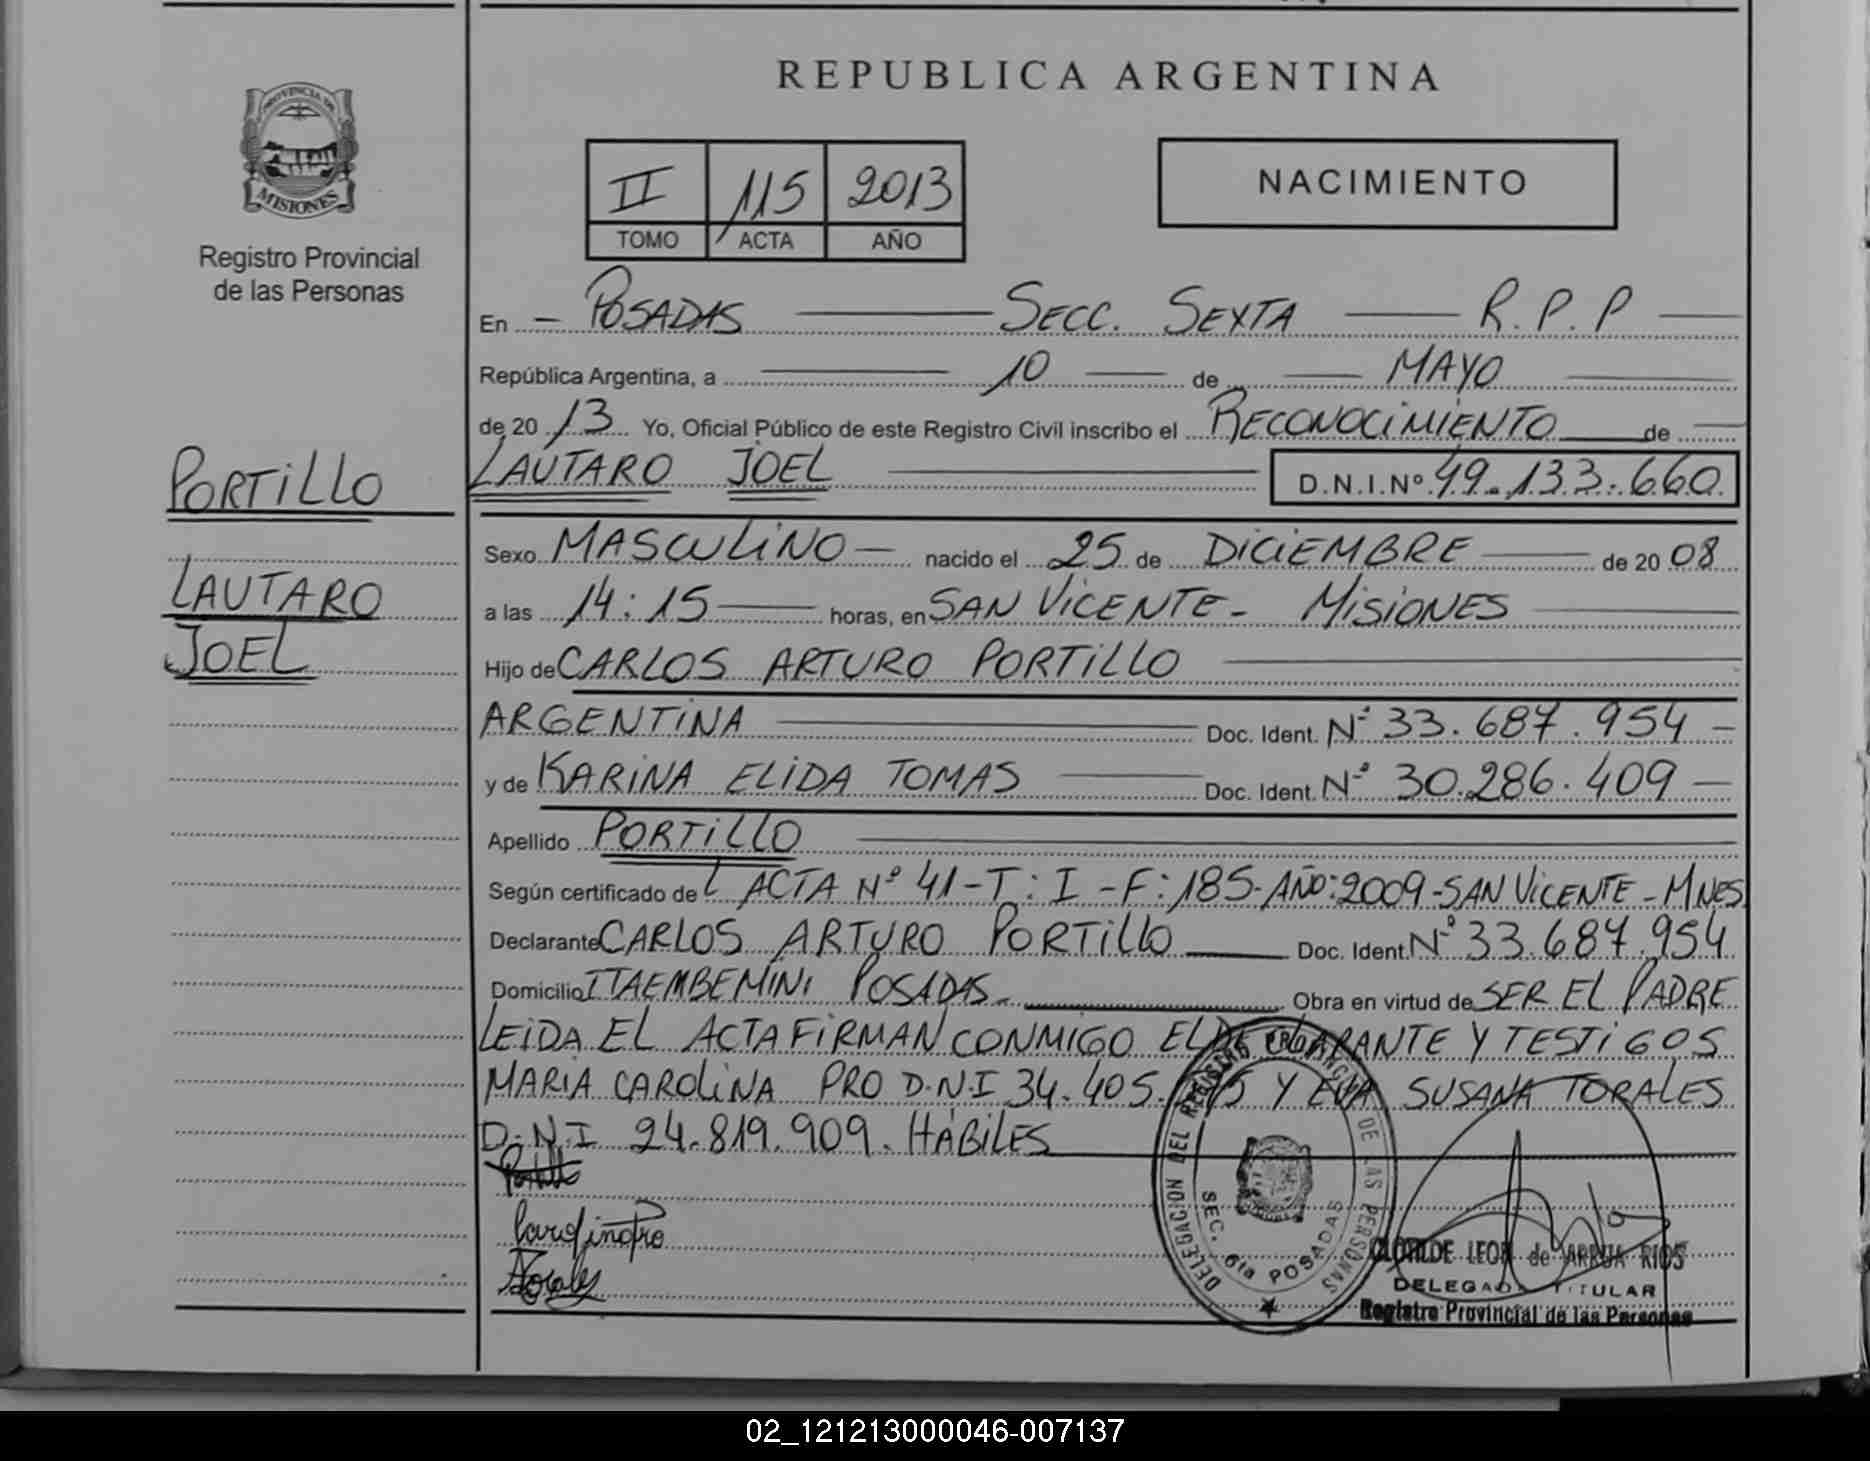 REPUBLICA ARGENTINA
PROVINCIA DE
MISIONES
Registro Provincial
de las Personas
II 115 2013
TOMO ACTA AÑO
NACIMIENTO
En - POSADAS — SECC. SEXTA — R.P.P —
República Argentina, a — 10 — de — MAYO —
de 20 13 Yo, Oficial Público de este Registro Civil inscribo el RECONOCIMIENTO de
LAUTARO JOEL — D.N.I.Nº 49.133.660
PORTILLO
LAUTARO
JOEL
Sexo MASCULINO — nacido el 25 de DICIEMBRE — de 20 08
a las 14:15 — horas, en SAN VICENTE - MISIONES —
Hijo de CARLOS ARTURO PORTILLO —
ARGENTINA — Doc. Ident. Nº 33.687.954 —
y de KARINA ELIDA TOMAS — Doc. Ident. Nº 30.286.409 —
Apellido PORTILLO —
Según certificado de L ACTA Nº 41-T: I-F: 185-AÑO:2009-SAN VICENTE-MNES.
Declarante CARLOS ARTURO PORTILLO — Doc. Ident. Nº 33.687.954
Domicilio ITAEMBEMINI POSADAS — Obra en virtud de SER EL PADRE
LEIDA EL ACTA FIRMAN CONMIGO EL DECLARANTE Y TESTIGOS
MARIA CAROLINA PRO D.N.I 34.405. Y EVA SUSANA TORALES
D.N.I 24.819.909. HÁBILES —
Portillo
Carolina Pro
Torales
DELEGACION DEL REGISTRO PROVINCIAL DE LAS PERSONAS
SEC. 6ta POSADAS
CLOTILDE LEON de ARRUA RIOS
DELEGADA TITULAR
Registro Provincial de las Personas
02_121213000046-007137